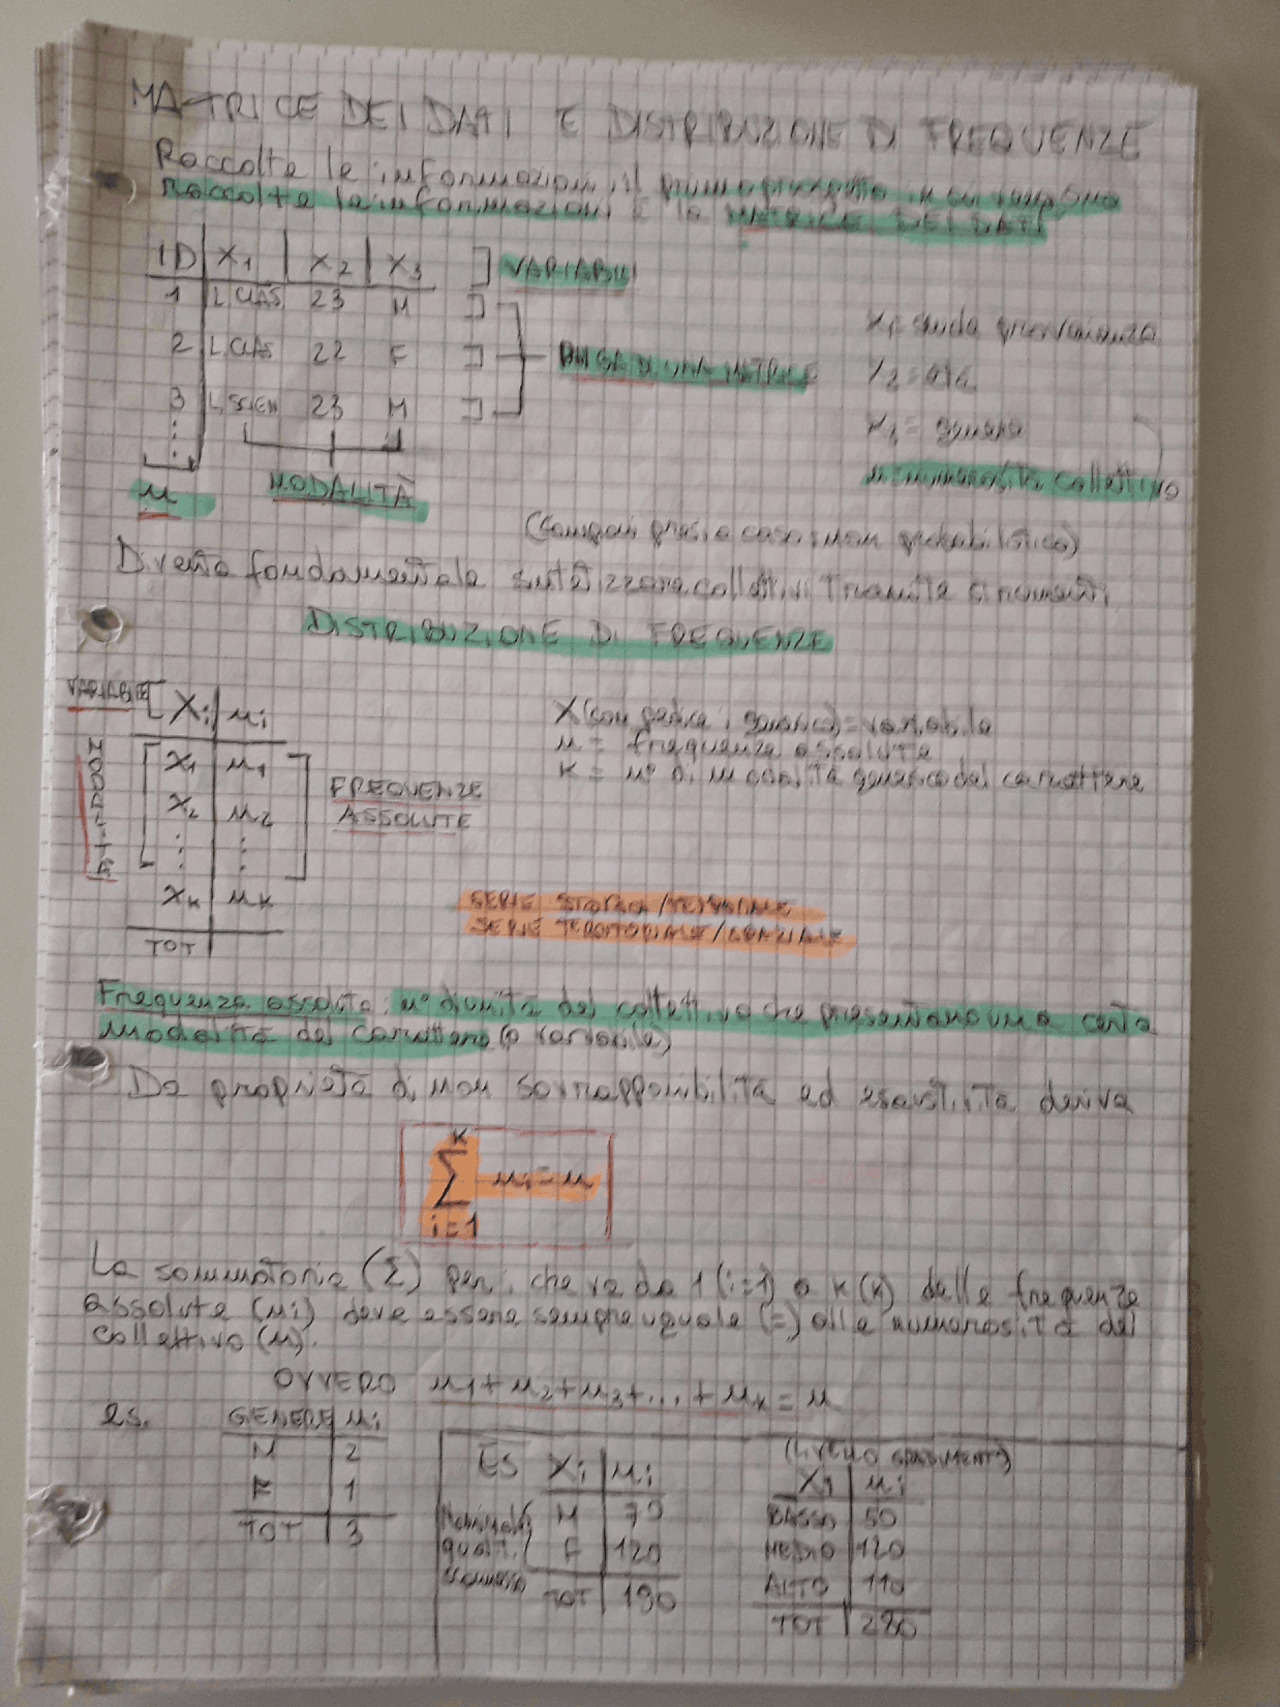 MATRICE DEI DATI E DISTRIBUZIONE DI FREQUENZE
Raccolte le informazioni il primo prospetto in cui
Raccolte le informazioni è la MATRICE DEI DATI
ID X1 X2 X3 VARIABILI
1 L.CLAS 23 M
2 L.CLAS 22 F
3 L SCIEN 23 M
RIGA DI UNA MATRICE
X1 = scuola provenienza
X2 = età
= genere
n = numerosità collettivo
n MODALITÀ
(campioni presi a caso: non probabilistico)
Diventa fondamentale sintetizzare collettivi tramite strumenti
DISTRIBUZIONE DI FREQUENZE
VARIABILE Xi ni
MODALITÀ
x1 n1
x2 n2
⋮ ⋮
xk nk
TOT
FREQUENZE
ASSOLUTE
X (con pedice i generico) = variabile
n = frequenze assolute
K = n° di modalità generico del carattere
SERIE STORICA/TEMPORALE
SERIE TERRITORIALE/SPAZIALE
Frequenza assoluta: n° di unità del collettivo che presentano una certa
modalità del carattere (o variabile)
Da proprietà di non sovrapponibilità ed esaustività deriva
K
∑ ni = n
i=1
La sommatoria (Σ) per i che va da 1 (i=1) a K (K) delle frequenze
assolute (ni) deve essere sempre uguale (=) alla numerosità del
collettivo (n).
OVVERO n1+n2+n3+...+nk = n
es.
GENERE ni
M 2
F 1
TOT 3
ES Xi ni
M 70
F 120
TOT 190
Nominale
qualit.
sconnesso
(LIVELLO GRADIMENTO)
Xi ni
BASSO 50
MEDIO 120
ALTO 110
TOT 280